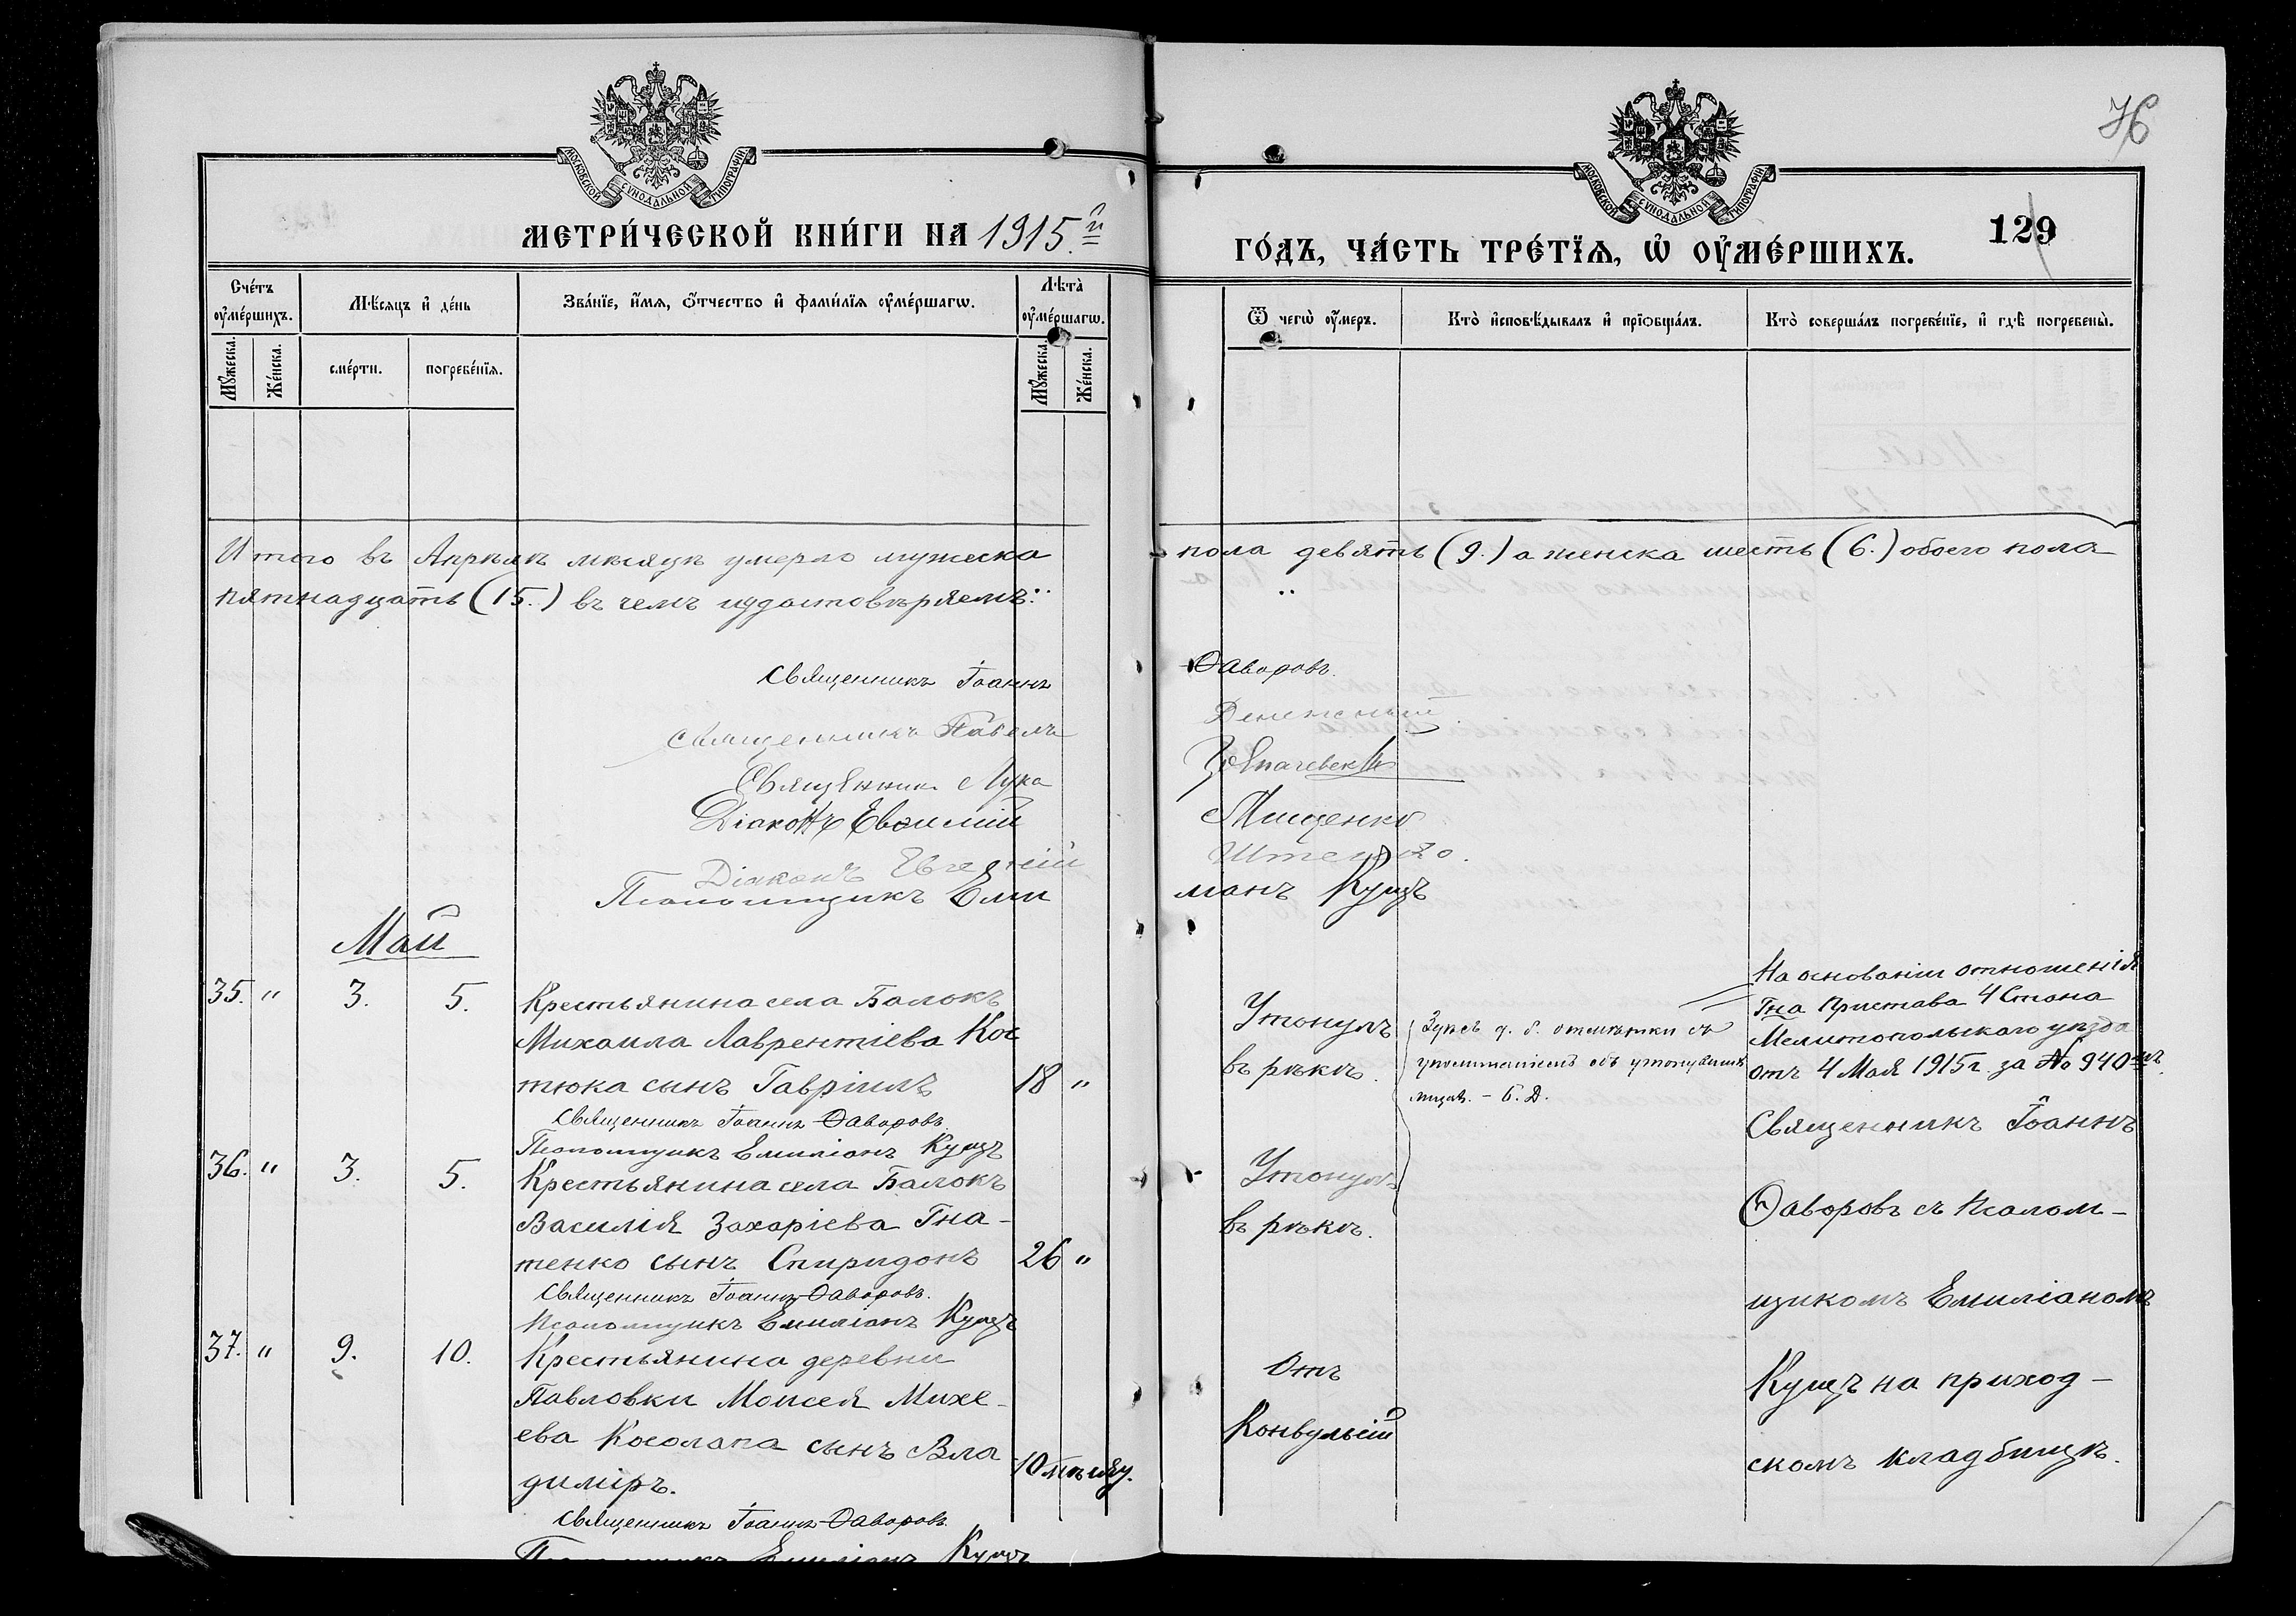 76
МОСКОВСКОЙ СѴНОДАЛЬНОЙ ТИПОГРАФІИ
МОСКОВСКОЙ СѴНОДАЛЬНОЙ ТИПОГРАФІИ
МЕТРИ́ЧЕСКОЙ КНИ́ГИ НА 1915.й
ГО́ДЪ, ЧА́СТЬ ТРЕ́ТЇѦ, Ѡ҆ ОУ҆МЕ́РШИХЪ.
129
Сче́тъ оу҆ме́ршихъ.
Мѣ́сѧцъ и҆ де́нь
Зва́нїе, и҆́мѧ, ѻ҆́тчество и҆ фамилі́ѧ оу҆ме́ршагѡ.
Лѣ́та̀ оу҆ме́ршагѡ.
Мꙋ́жеска.
Же́нска.
сме́рти.
погребе́нїѧ.
Мꙋ́жеска.
Же́нска.
Ѿ чегѡ̀ оу҆́меръ.
Кто̀ и҆сповѣ́дывалъ и҆ прїѡбща́лъ.
Кто̀ соверша́лъ погребе́нїе, и҆ гдѣ̀ погребены̀.
Итого въ Апрѣлѣ мѣсяцѣ умерло мужеска пола девять (9.) а женска шесть (6.) обоего пола
пятнадцать (15.) въ чемъ удостовѣряемъ:
Священникъ Іоаннъ Ѳаворовъ.
Священникъ Павелъ
Священник Лука
Діаконъ Евѳимій Мищенко
Діаконъ Евгеній
Псаломщикъ Емиліанъ Кущъ
Май
35. " 3. 5. Крестьянина села Балокъ
Михаила Лаврентіева Кос
тюка сынъ Гавріилъ 18 "
Священникъ Іоаннъ Ѳаворовъ
Псаломщикъ Емиліанъ Кущъ
Утонулъ
въ рѣкѣ.
Здѣсь д. б. отмѣтки съ
упоминаніемъ объ утонувшихъ
лицахъ. – Б. Д.
На основаніи отношенія
Г-на Пристава 4 Стана
Мелитопольскаго уѣзда
отъ 4 Мая 1915 г. за № 940-мъ.
Священникъ Іоаннъ
Ѳаворовъ съ псалом-
щикомъ Емиліаномъ
Кущъ на приход-
скомъ кладбищѣ.
36. " 3. 5. Крестьянина села Балокъ
Василія Захаріева Гна-
тенко сынъ Спиридонъ 26 "
Священникъ Іоаннъ Ѳаворовъ.
Псаломщикъ Емиліанъ Кущъ
Утонулъ
въ рѣкѣ.
37. " 9. 10. Крестьянина деревни
Павловки Моисея Михе-
ева Косолапа сынъ Вла
диміръ. 10 мѣсяц.
Священникъ Іоаннъ Ѳаворовъ
Псаломщикъ Емиліанъ Кущъ
Отъ
Конвульсій